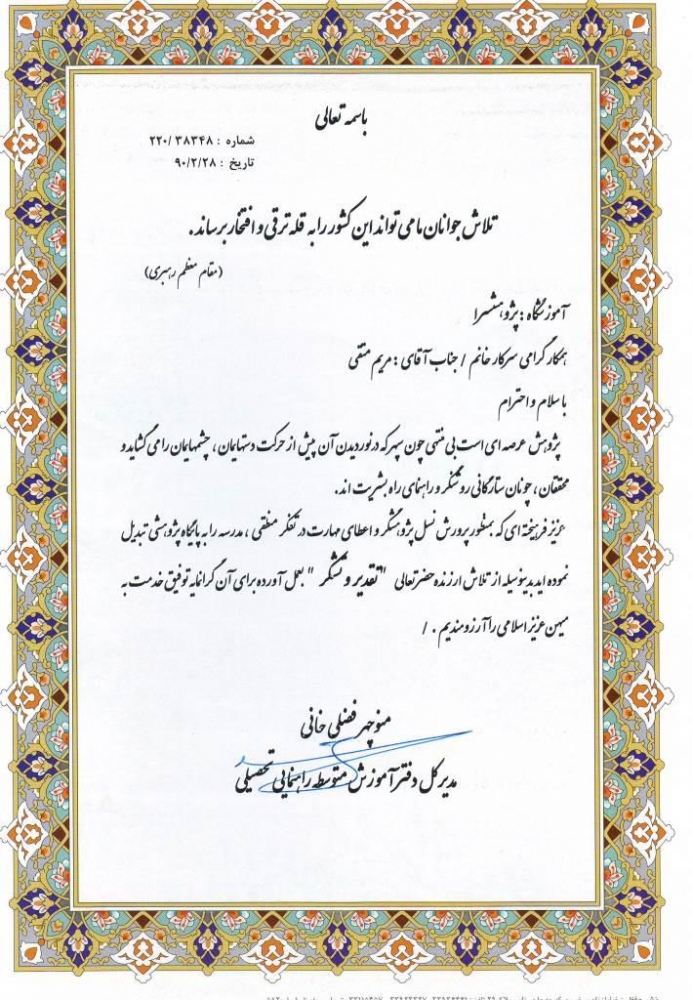 باسمه تعالی
شماره : ۲۲۰/۳۸۳۴۸
تاریخ : ۹۰/۲/۲۸
تلاش جوانان ما می تواند این کشور را به قله ترقی و افتخار برساند.
(مقام معظم رهبری)
آموزشگاه : پژوهشسرا
همکار گرامی سرکار خانم / جناب آقای : مریم متقی
با سلام و احترام
پژوهش عرصه ای است بی منتهی چون سپهر که در نوردیدن آن پیش از حرکت دستهایمان ، چشمهایمان را می گشاید و
محققان ، چونان ستارگانی روشنگر و راهنمای راه بشریت اند.
عزیز فرهیخته ای که بمنظور پرورش نسل پژوهشگر و اعطای مهارت در تفکر منطقی ، مدرسه را به پایگاه پژوهشی تبدیل
نموده اید بدینوسیله از تلاش ارزنده حضرتعالی " تقدیر و تشکر " بعمل آورده برای آن گرانمایه توفیق خدمت به
میهن عزیز اسلامی را آرزومندیم . /
منوچهر فضلی خانی
مدیر کل دفتر آموزش متوسطه راهنمایی تحصیلی